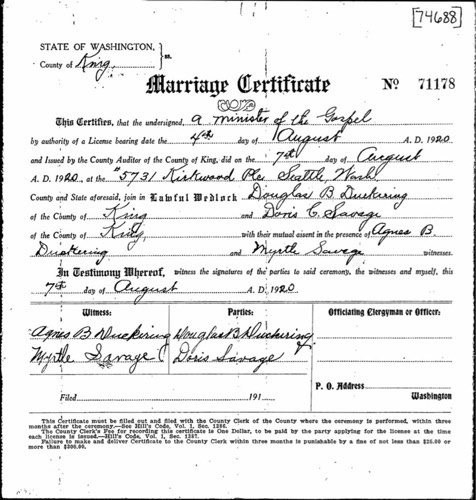 [74688]
STATE OF WASHINGTON,
County of King, } ss.
Marriage Certificate No 71178
This Certifies, that the undersigned, a minister of the Gospel
by authority of a License bearing date the 4th day of August A. D. 1920
and Issued by the County Auditor of the County of King, did on the 7th day of August
A. D. 1920, at the "5731 Kirkwood Plc, Seattle, Wash
County and State aforesaid, join in Lawful Wedlock Douglas B Duckering
of the County of King and Doris C. Savage
of the County of King, with their mutual assent in the presence of Agnes B.
Duckering and Myrtle Savage witnesses.
In Testimony Whereof, witness the signatures of the parties to said ceremony, the witnesses and myself, this
7th day of August A. D. 1920
Witness: Parties: Officiating Clergyman or Officer:
Agnes B Duckering Douglas B Duckering
Myrtle Savage Doris Savage
P. O. Address
Filed 191 Washington
This Certificate must be filled out and filed with the County Clerk of the County where the ceremony is performed, within three
months after the ceremony.—See Hill's Code, Vol. 1, Sec. 1386.
The County Clerk's Fee for recording this certificate is One Dollar, to be paid by the party applying for the license at the time
each license is issued.—Hill's Code, Vol. 1, Sec. 1387.
Failure to make and deliver Certificate to the County Clerk within three months is punishable by a fine of not less than $25.00 or
more than $300.00.